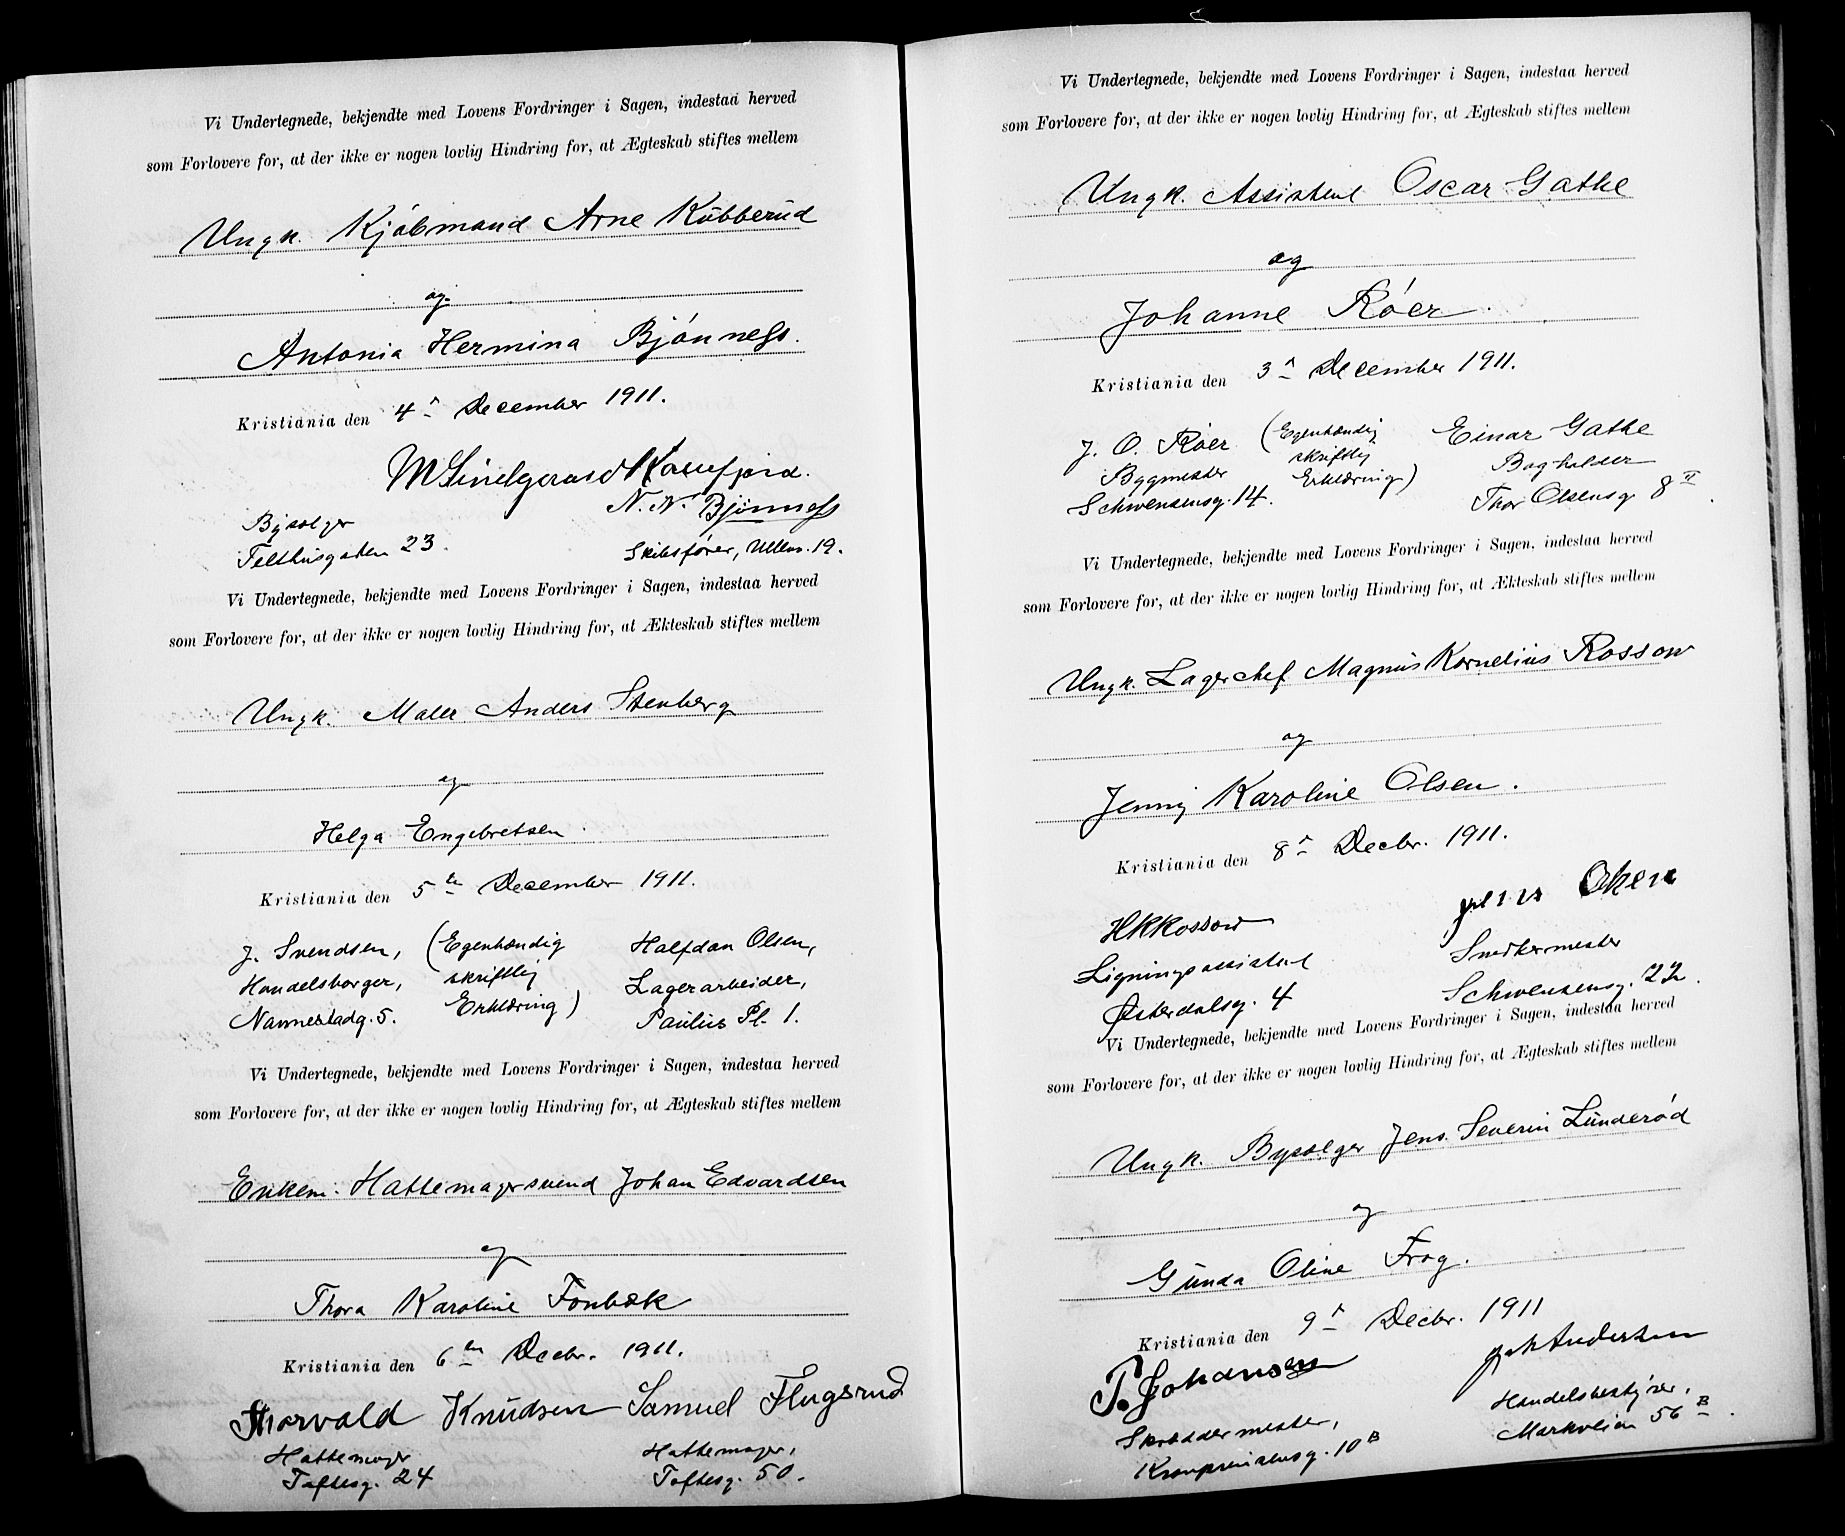 Vi Undertegnede, bekjendte med Lovens Fordringer i Sagen, indestaa herved
som Forlovere for, at der ikke er nogen lovlig Hindring for, at Ægteskab stiftes mellem
Ungk. Kjøbmand Arne Kubberud
og
Antonia Hermina Bjønness.
Kristiania den 4de December 1911.
N. N. Bjønness
Bysælger
Skibsfører, Ullev. 19.
Telthusgaden 23.
Vi Undertegnede, bekjendte med Lovens Fordringer i Sagen, indestaa herved
som Forlovere for, at der ikke er nogen lovlig Hindring for, at Ækteskab stiftes mellem
Ungk. Maler Anders Stenberg
og
Helga Engebretsen.
Kristiania den 5te December 1911.
J. Svendsen, (Egenhændig Halfdan Olsen,
Handelsborger, skriftlig Lagerarbeider,
Nannestadg. 5. Erklæring) Paulus Pl. 1.
Vi Undertegnede, bekjendte med Lovens Fordringer i Sagen, indestaa herved
som Forlovere for, at der ikke er nogen lovlig Hindring for, at Ægteskab stiftes mellem
Enkem. Hattemagersvend Johan Edvardsen
og
Thora Karoline Fonbæk
Kristiania den 6te Decbr. 1911.
Thorvald Knudsen Samuel Flugsrud
Hattemager Hattemager,
Toftesg. 24 Toftesg. 50.
Vi Undertegnede, bekjendte med Lovens Fordringer i Sagen, indestaa herved
som Forlovere for, at der ikke er nogen lovlig Hindring for, at Ægteskab stiftes mellem
Ungk. Assistent Oscar Gathe
og
Johanne Røer.
Kristiania den 3die December 1911.
J. O. Røer (Egenhændig Einar Gathe
Bygmester skriftlig Bogholder
Schwensensg. 14. Erklæring) Thor Olsensg. 8 II.
Vi Undertegnede, bekjendte med Lovens Fordringer i Sagen, indestaa herved
som Forlovere for, at der ikke er nogen lovlig Hindring for, at Ækteskab stiftes mellem
Ungk. Lagerchef Magnus Kornelius Rossow
og
Jenny Karoline Olsen.
Kristiania den 8de Decbr. 1911.
Olsen
HKRossow
Snedkermester
Ligningsassistent
Schwensensg. 22.
Østerdalsg. 4
Vi Undertegnede, bekjendte med Lovens Fordringer i Sagen, indestaa herved
som Forlovere for, at der ikke er nogen lovlig Hindring for, at Ægteskab stiftes mellem
Ungk. Bysælger Jens Severin Lunderød
og
Gunda Oline Frog.
Kristiania den 9de Decbr. 1911
P. Johansen Andersen
Skræddermester, Handelsbestyrer,
Kronprinsensg. 10 B Markveien 56 B.